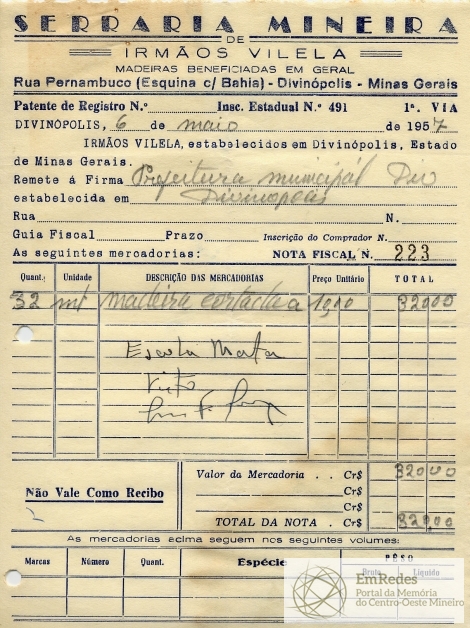 SERRARIA MINEIRA
DE
IRMÃOS VILELA
MADEIRAS BENEFICIADAS EM GERAL
Rua Pernambuco (Esquina c/ Bahia) - Divinópolis - Minas Gerais
Patente de Registro N.º Insc. Estadual N.º 491 1ª. VIA
DIVINÓPOLIS, 6 de maio de 1957
IRMÃOS VILELA, estabelecidos em Divinópolis, Estado
de Minas Gerais.
Remete á Firma Prefeitura municipal Div
estabelecida em Divinopolis
Rua N.
Guia Fiscal Prazo Inscrição do Comprador N.
As seguintes mercadorias: NOTA FISCAL N. 223
Quant. Unidade DESCRIÇÃO DAS MERCADORIAS Preço Unitário TOTAL
32 mt madeira cortada a 32000
Escola Mata
Visto
Valor da Mercadoria . . Cr$ 32000
Cr$
Não Vale Como Recibo
Cr$
TOTAL DA NOTA . Cr$ 32000
As mercadorias acima seguem nos seguintes volumes:
Marcas Número Quant. Espécie PÊSO
Bruto Líquido
EmRedes
Portal da Memória
do Centro-Oeste Mineiro